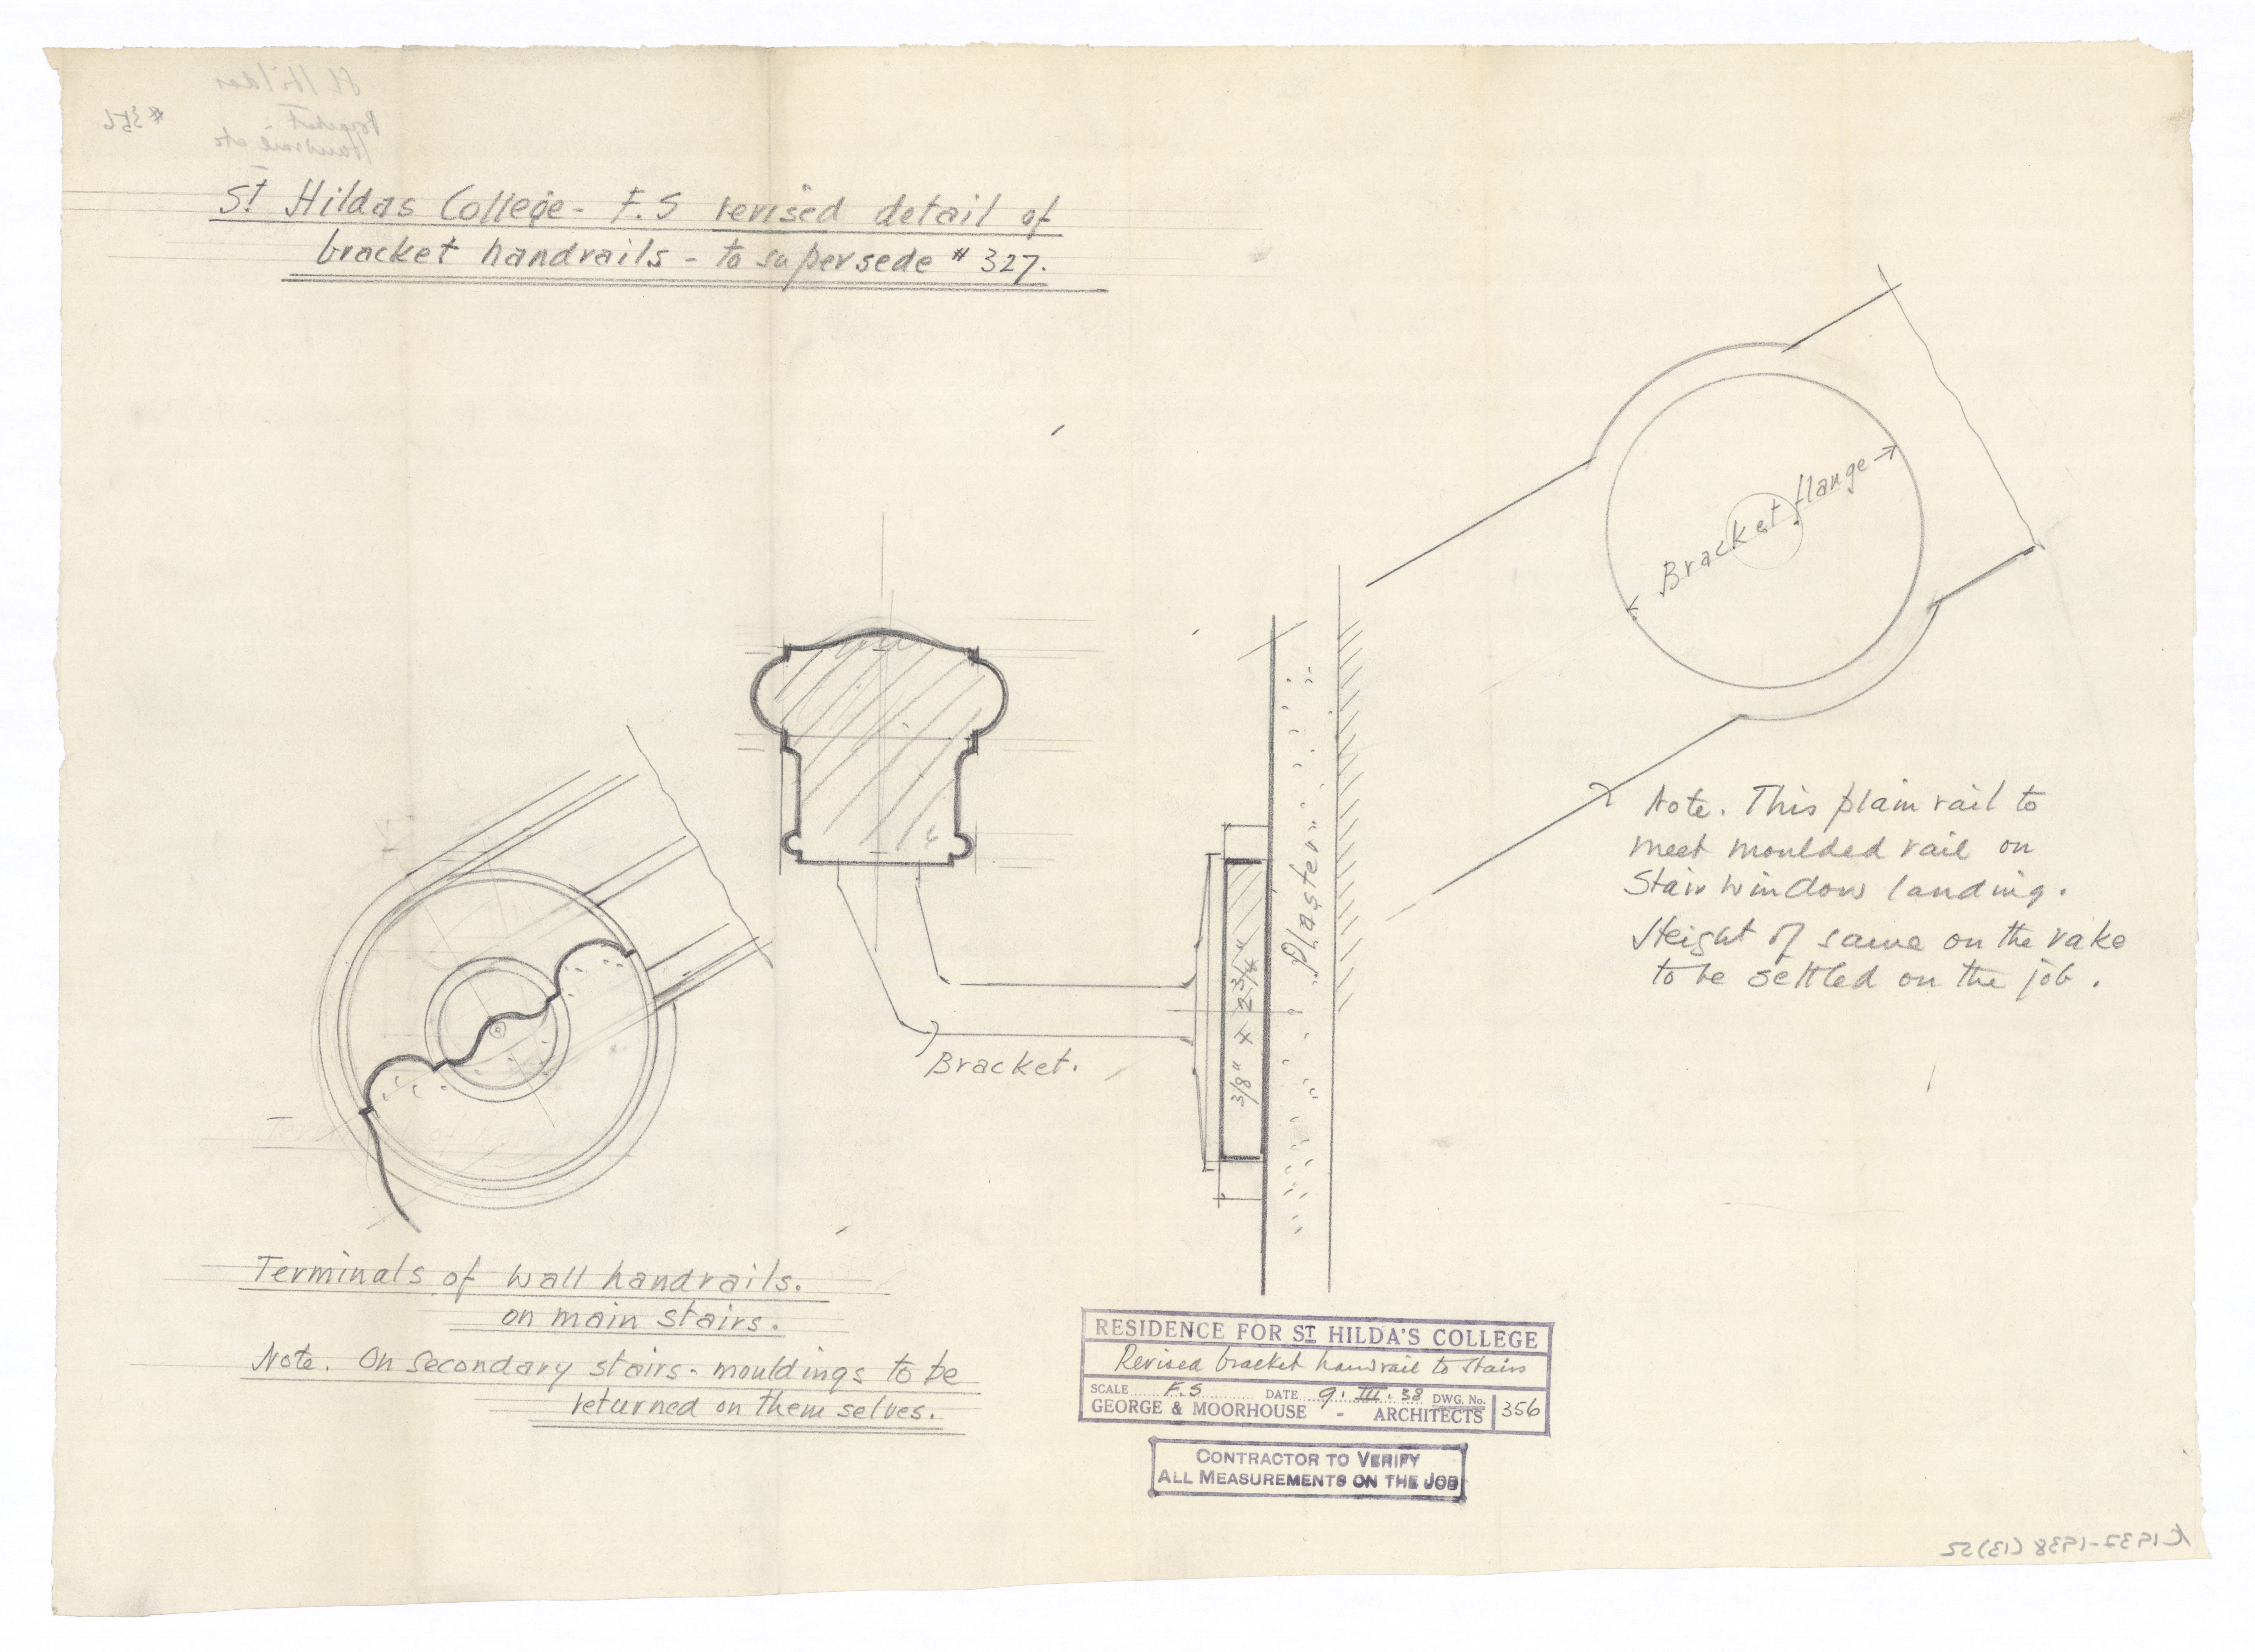 St Hildas College - F.S revised detail of
bracket handrails - to supersede # 327.
Bracket flange
Note. This plain rail to
meet moulded rail on
Stair window landing.
Height of same on the rake
to be settled on the job.
"Plaster"
3/8" x 2 3/4"
Bracket.
Terminals of wall handrails.
on main stairs.
Note. On secondary stairs - mouldings to be
returned on them selves.
RESIDENCE FOR ST HILDA'S COLLEGE
Revised bracket handrail to stairs
SCALE F.S DATE 9. III. 38 DWG. No. 356
GEORGE & MOORHOUSE - ARCHITECTS
CONTRACTOR TO VERIFY
ALL MEASUREMENTS ON THE JOB
St Hildas
Bracket
Handrail etc
#356
K 1937-1938 (13) 55